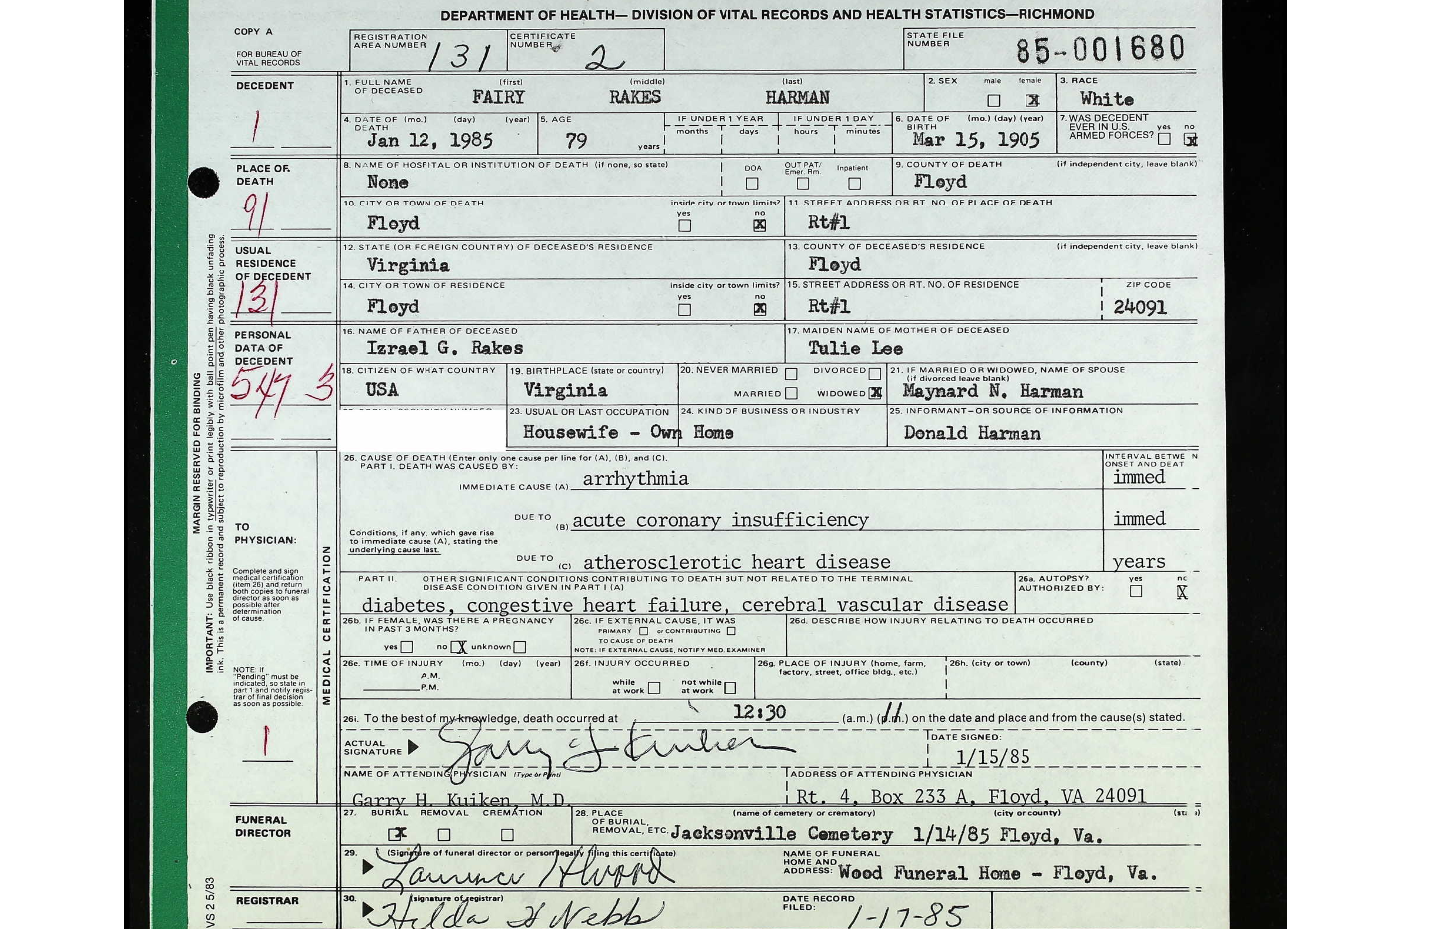 DEPARTMENT OF HEALTH— DIVISION OF VITAL RECORDS AND HEALTH STATISTICS—RICHMOND
COPY A
FOR BUREAU OF
VITAL RECORDS
REGISTRATION
AREA NUMBER 131
CERTIFICATE
NUMBER 2
STATE FILE
NUMBER 85-001680
DECEDENT
1
1. FULL NAME (first) (middle) (last)
OF DECEASED FAIRY RAKES HARMAN
2. SEX male female
X
3. RACE
White
4. DATE OF (mo.) (day) (year)
DEATH
Jan 12, 1985
5. AGE
79 years
IF UNDER 1 YEAR
months days
IF UNDER 1 DAY
hours minutes
6. DATE OF (mo.) (day) (year)
BIRTH
Mar 15, 1905
7. WAS DECEDENT
EVER IN U.S.
ARMED FORCES? yes no
X
PLACE OF
DEATH
91
8. NAME OF HOSPITAL OR INSTITUTION OF DEATH (if none, so state)
None
DOA OUT PAT/ Emer. Rm. Inpatient
9. COUNTY OF DEATH (if independent city, leave blank)
Floyd
10. CITY OR TOWN OF DEATH inside city or town limits?
yes no
Floyd X
11. STREET ADDRESS OR RT. NO. OF PLACE OF DEATH
Rt#1
USUAL
RESIDENCE
OF DECEDENT
131
12. STATE (OR FOREIGN COUNTRY) OF DECEASED'S RESIDENCE
Virginia
13. COUNTY OF DECEASED'S RESIDENCE (if independent city, leave blank)
Floyd
14. CITY OR TOWN OF RESIDENCE inside city or town limits?
yes no
Floyd X
15. STREET ADDRESS OR RT. NO. OF RESIDENCE ZIP CODE
Rt#1 24091
PERSONAL
DATA OF
DECEDENT
547 3
16. NAME OF FATHER OF DECEASED
Izrael G. Rakes
17. MAIDEN NAME OF MOTHER OF DECEASED
Tulie Lee
18. CITIZEN OF WHAT COUNTRY
USA
19. BIRTHPLACE (state or country)
Virginia
20. NEVER MARRIED DIVORCED
MARRIED WIDOWED X
21. IF MARRIED OR WIDOWED, NAME OF SPOUSE
(if divorced leave blank)
Maynard N. Harman
23. USUAL OR LAST OCCUPATION
24. KIND OF BUSINESS OR INDUSTRY
Housewife - Own Home
25. INFORMANT—OR SOURCE OF INFORMATION
Donald Harman
MARGIN RESERVED FOR BINDING
IMPORTANT: Use black ribbon in typewriter or print legibly with ball point pen having black unfading
ink. This is a permanent record and subject to reproduction by microfilm and other photographic process.
TO
PHYSICIAN:
Complete and sign
medical certification
(item 26) and return
both copies to funeral
director as soon as
possible after
determination
of cause.
NOTE: If
"Pending" must be
indicated, so state in
part 1 and notify regis-
trar of final decision
as soon as possible.
1
MEDICAL CERTIFICATION
26. CAUSE OF DEATH (Enter only one cause per line for (A), (B), and (C).
PART I. DEATH WAS CAUSED BY:
INTERVAL BETWE N
ONSET AND DEAT
IMMEDIATE CAUSE (A) arrhythmia immed
DUE TO
(B) acute coronary insufficiency immed
Conditions, if any, which gave rise
to immediate cause (A), stating the
underlying cause last.
DUE TO
(C) atherosclerotic heart disease years
PART II. OTHER SIGNIFICANT CONDITIONS CONTRIBUTING TO DEATH BUT NOT RELATED TO THE TERMINAL
DISEASE CONDITION GIVEN IN PART I (A)
diabetes, congestive heart failure, cerebral vascular disease
26a. AUTOPSY?
AUTHORIZED BY: yes no
X
26b. IF FEMALE, WAS THERE A PREGNANCY
IN PAST 3 MONTHS?
yes no X unknown
26c. IF EXTERNAL CAUSE, IT WAS
PRIMARY or CONTRIBUTING
TO CAUSE OF DEATH
NOTE: IF EXTERNAL CAUSE, NOTIFY MED. EXAMINER
26d. DESCRIBE HOW INJURY RELATING TO DEATH OCCURRED
26e. TIME OF INJURY (mo.) (day) (year)
A.M.
P.M.
26f. INJURY OCCURRED
while at work not while at work
26g. PLACE OF INJURY (home, farm,
factory, street, office bldg., etc.)
26h. (city or town) (county) (state)
26i. To the best of my knowledge, death occurred at 12:30 (a.m.) (p.m.) on the date and place and from the cause(s) stated.
ACTUAL
SIGNATURE Garry H Kuiken
DATE SIGNED:
1/15/85
NAME OF ATTENDING PHYSICIAN (Type or Print)
Garry H. Kuiken, M.D.
ADDRESS OF ATTENDING PHYSICIAN
Rt. 4, Box 233 A, Floyd, VA 24091
FUNERAL
DIRECTOR
27. BURIAL REMOVAL CREMATION
X
28. PLACE
OF BURIAL,
REMOVAL, ETC. (name of cemetery or crematory) (city or county)
Jacksonville Cemetery 1/14/85 Floyd, Va.
29. (Signature of funeral director or person legally filing this certificate)
NAME OF FUNERAL
HOME AND
ADDRESS: Wood Funeral Home - Floyd, Va.
REGISTRAR
30. (signature of registrar)
Hilda H Webb
DATE RECORD
FILED: 1-17-85
VS 2 5/83